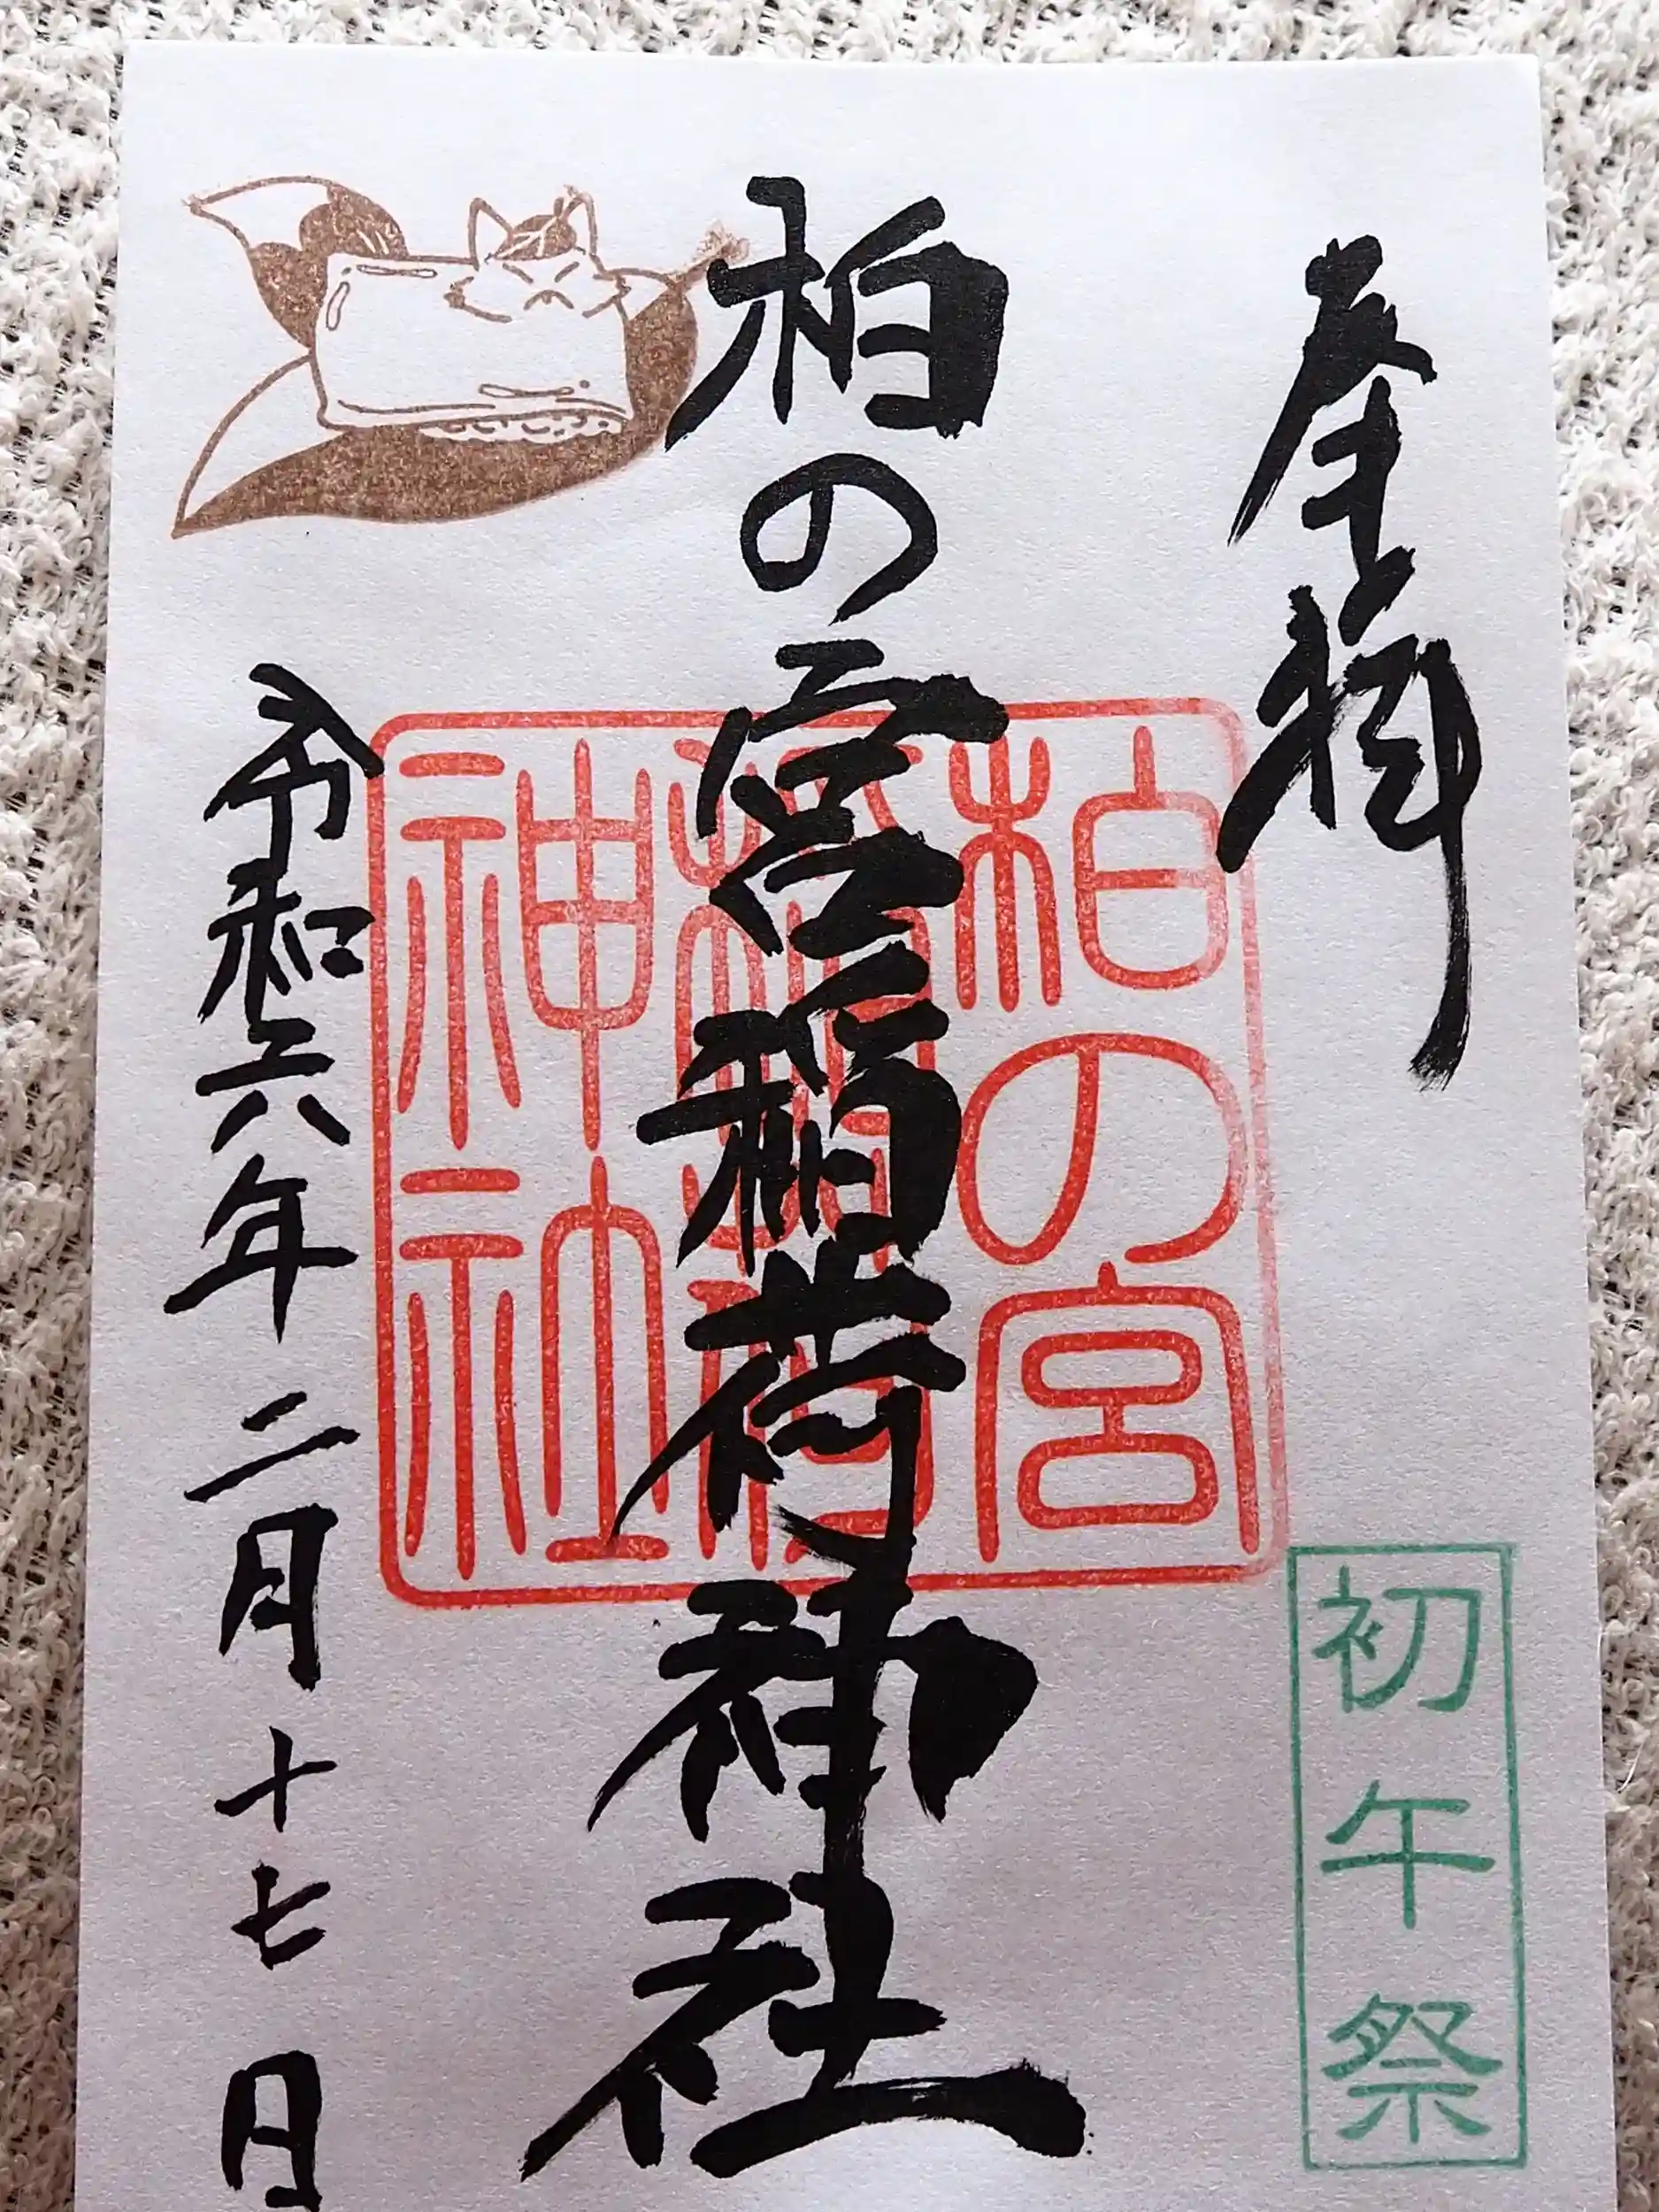 奉拝
初午祭
柏の宮稲荷神社
柏の宮
稲荷
神社
令和六年二月十七日